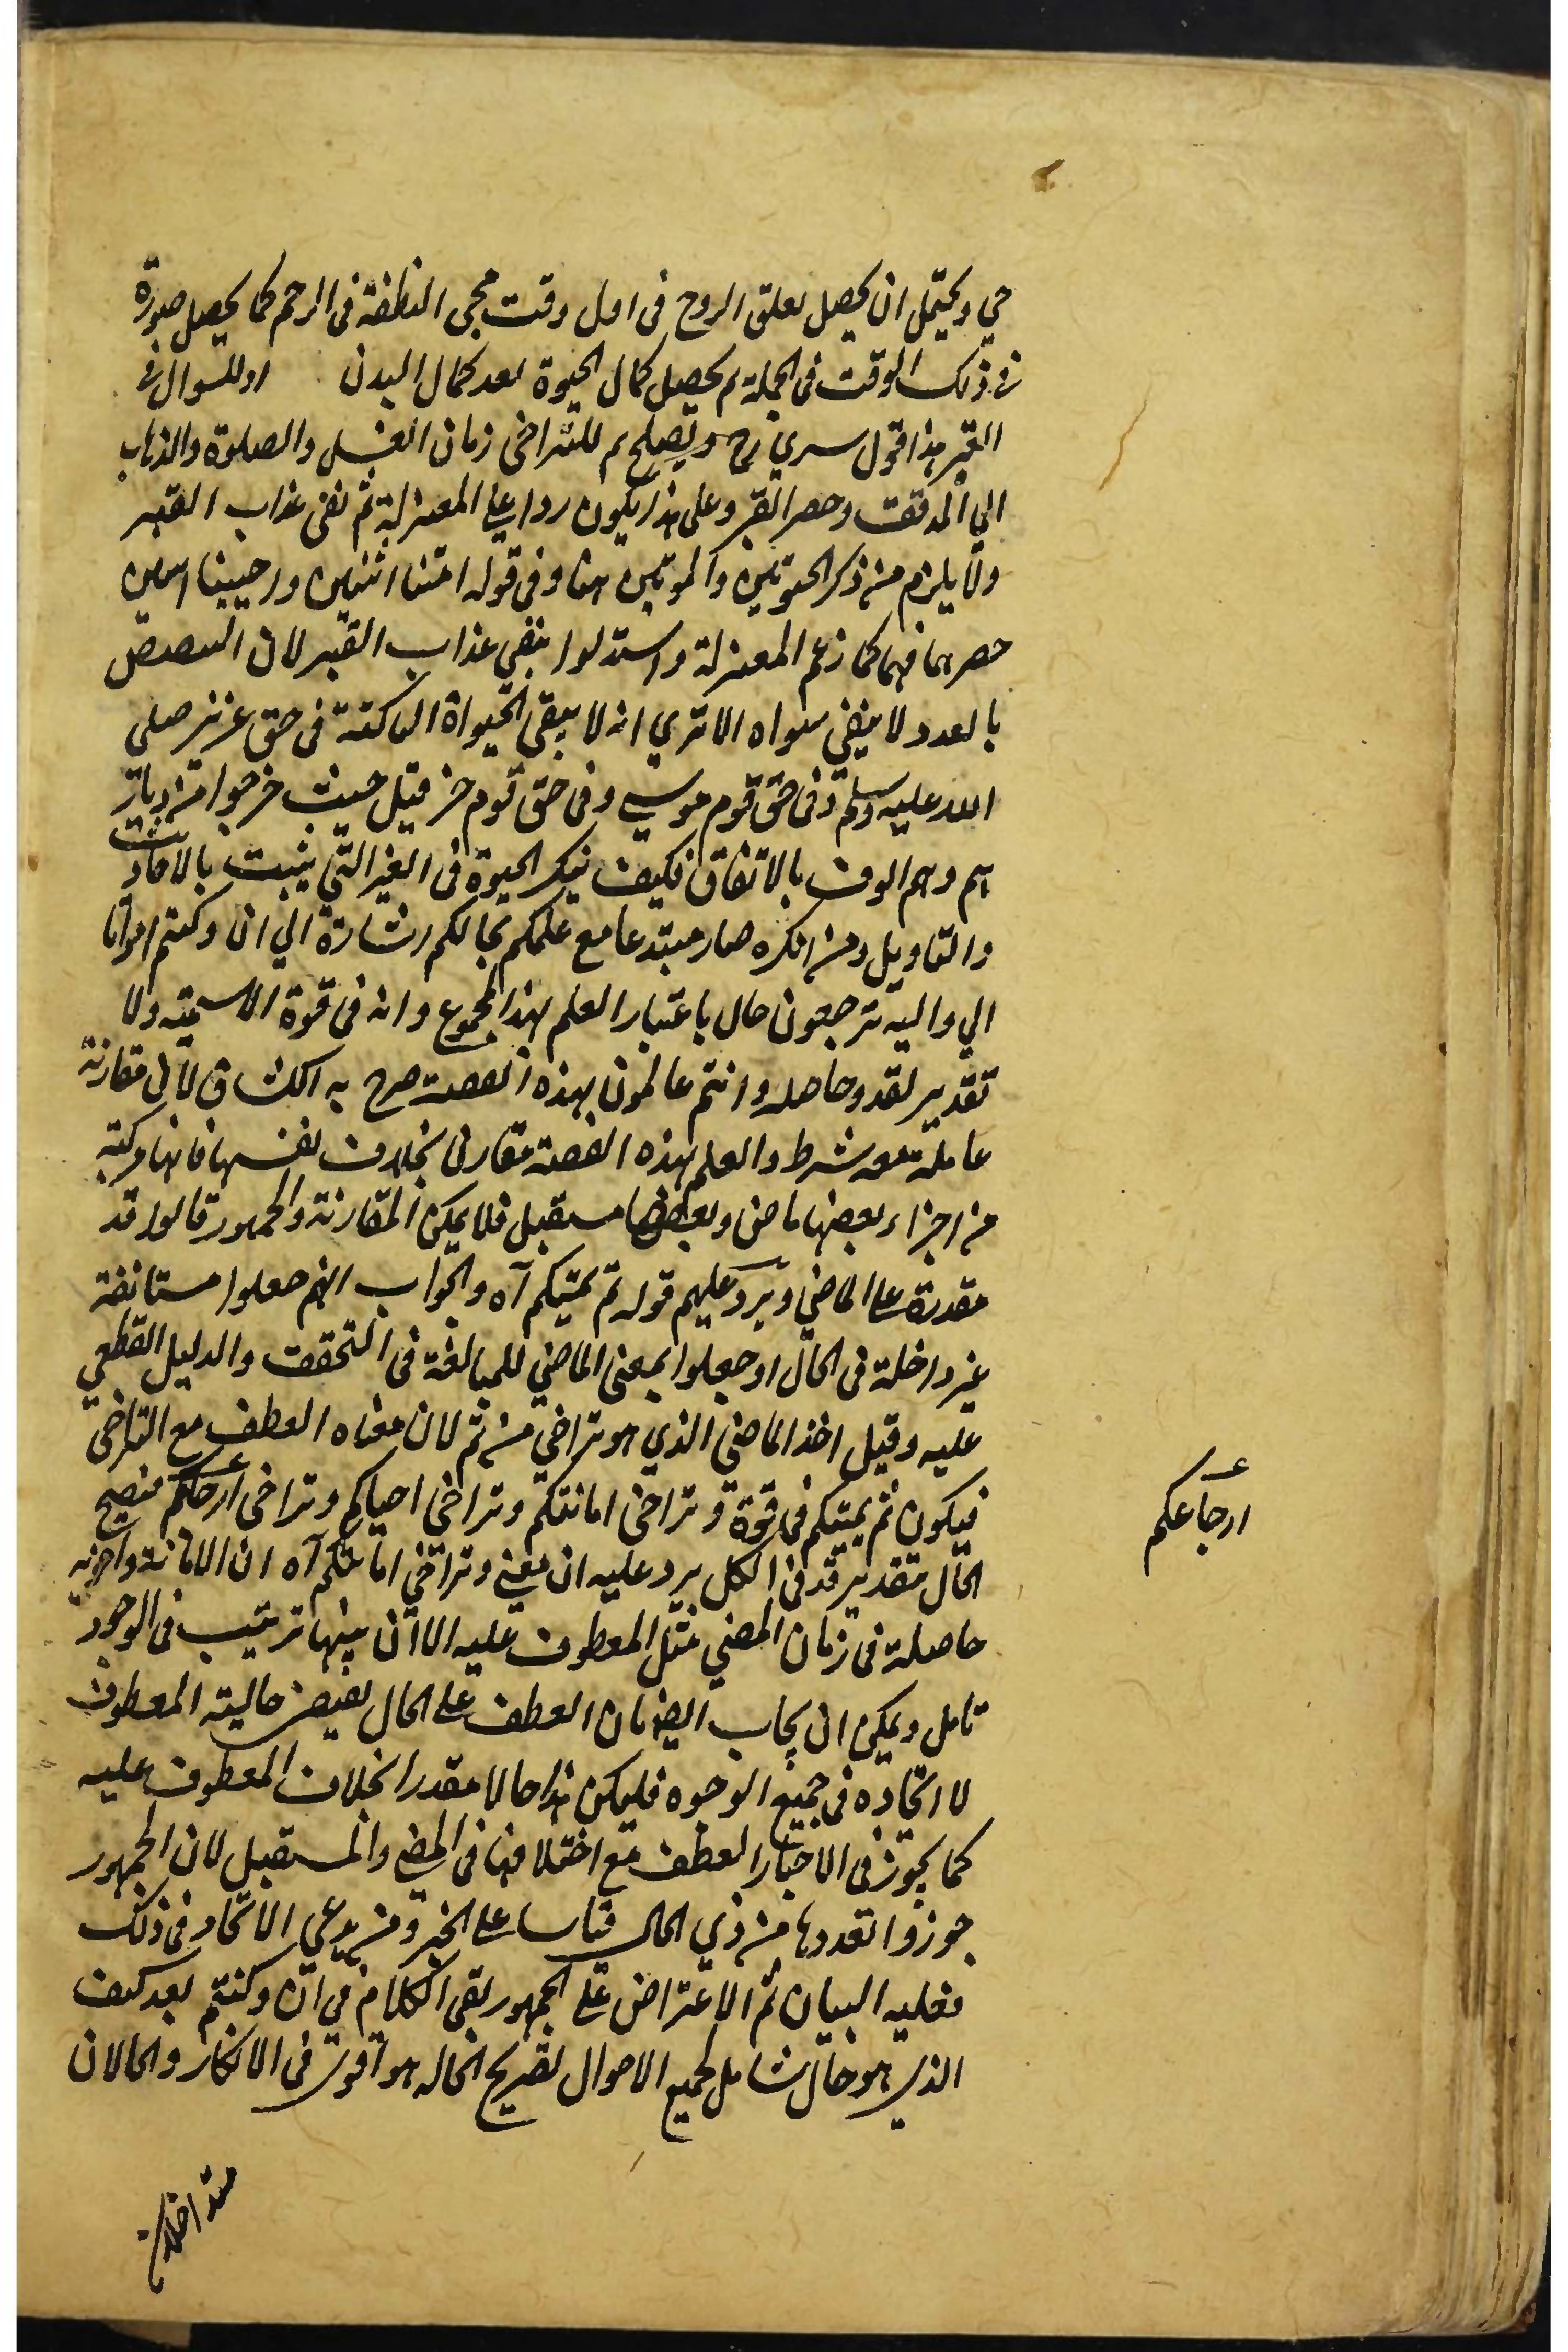 حي ويحتمل ان يحصل تعلق الروح في اول وقت مجي النطفة في الرحم كما يحصل صورة
في ذلك الوقت في الجملة ثم يحصل كمال الحيوة بعد كمال البدن او للسوال في
القبر هذا قول سري رح ويصلح ثم للتراخى زمان الغسل والصلوة والذهاب
الي المدفن وحصر القبر وعلى هذا يكون ردا على المعتزلة ثم نفى عذاب القبر
ولا يلزم من ذكر الحيوتين والموتين هنا وفي قوله امتنا اثنين واحيينا اثنين
حصرهما فيهما كما زعم المعتزلة واستدلوا بنفي عذاب القبر لان التنصيص
بالعدد لا ينفي سواه الا تري انه لا يبقى الحيواة الثالثة في حق عزير صلى
الله عليه وسلم وفي حق قوم موسي وفي حق قوم حزقيل حيث خرجوا من ديار
هم وهم الوف بالاتفاق فكيف ينكر الحيوة في القبر التي يثبت بالاحاديث
والتاويل ومن انكره صار مبتدعا مع علمكم بحالكم اشارة الي ان وكنتم امواتا
الي واليه ترجعون حال باعتبار العلم بهذا المجموع وانه في قوة الاسمية ولا
تقدير لقد وحاصله وانتم عالمون بهذه القصة صرح به الكشاف لان مقارنة
عاملة معه شرط والعلم بهذه القصة مقارن بخلاف نفسها فانها مركبة
من اجزاء بعضها ماضي وبعضها مستقبل فلا يمكن المقارنة والجمهور قالوا قد
مقدرة على الماضي ويرد عليهم قوله ثم يميتكم آه والجواب انهم جعلوا مستانفة
غير داخلة في الحال او جعلوا بمعنى الماضي للمبالغة في التحقق والدليل القطعي
عليه وقيل اخذ الماضي الذي هو تراخي من ثم لان معناه العطف مع التراخى
فيكون ثم يميتكم في قوة وتراخى اماتتكم وتراخى احياكم وتراخى ارجاعكم فيصح
الحال بتقدير قد في الكل يرد عليه ان معني وتراخي اماتتكم آه ان الاماتة واخويه
حاصلة في زمان المضي مثل المعطوف عليه الا ان بينها ترتيب في الوجود
تامل ويمكن ان يجاب ايضا بان العطف على الحال يقتضى حالية المعطوف
لا اتحاده في جميع الوجوه فليكن هذا حالا مقدرا بخلاف المعطوف عليه
كما يجوز في الاخبار العطف مع اختلافها في المضى والمستقبل لان الجمهور
جوزوا تعددها من ذي الحال قياسا على الخبر ومن يدعي الاتحاد في ذلك
فعليه البيان ثم الاعتراض على الجمهور بقى الكلام في ان وكنتم بعد كيف
الذي هو حال شامل لجميع الاحوال تصريح بحاله هو اقوى في الانكار والحالان
ارجاعكم